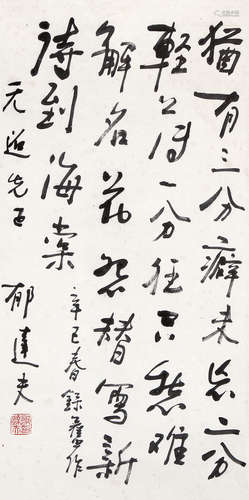 猶有三分癖未忘二分
輕薄一分狂只愁難
解名花怨替寫新
詩到海棠
辛巳春錄舊作
郁達夫